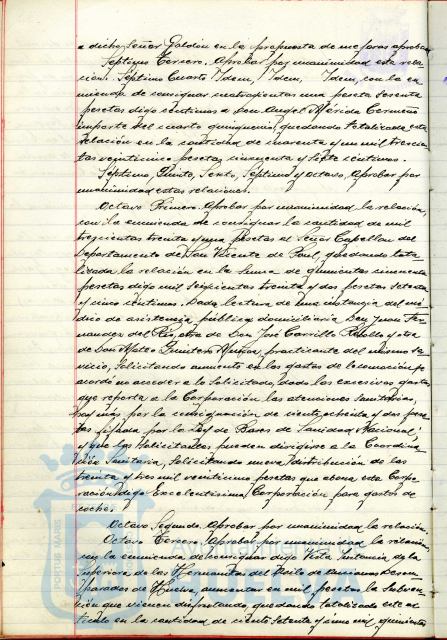 a dicho Señor Galdín en la propuesta de mejoras aprobar
Séptimo Tercero. Aprobar por unanimidad esta rela-
ción. Séptimo Cuarto Idem, Idem, Idem, con la en-
mienda de consignar cuatrocientas una peseta sesenta
pesetas digo céntimos a Don Angel Mérida Cermeño
importe del cuarto quinquenio, quedando totalizada esta
relación en la cantidad de cuarenta y un mil trescien-
tas veinticinco pesetas cincuenta y siete céntimos.
Séptimo, Quinto, Sexto, Septimo y Octavo, Aprobar por
unanimidad estas relaciones.
Octavo Primero. Aprobar por unanimidad la relación,
con la enmienda de consignar la cantidad de mil
trescientas treinta y una Pesetas al Señor Capellan del
Departamento de San Vicente de Paul, quedando tota-
lizada la relación en la suma de quinientas cincuenta
pesetas digo mil seiscientas treinta y dos pesetas setenta
y cinco céntimos. Dada lectura de una instancia del mé-
dico de asistencia pública domiciliaria Don Juan Fer-
nandez del Rio, otra de Don José Carrillo Rebollo y otra
de Don Mateo Quintero Muñoz, practicante del mismo Ser-
vicio, Solicitando aumento en los gastos de locomoción se
acordó no acceder a lo Solicitado, dado los excesivos gastos
que reporta a la Corporación las atenciones Sanitarias,
hay más por la consignación de ciento ochenta y dos pese-
tas fijada por la Ley de Bases de Sanidad Nacional,
y que los Solicitantes pueden dirigirse a la Coordina-
ción Sanitaria, Solicitando nueva distribución de las
treinta y tres mil veinticinco pesetas que abona esta Corpo-
ración digo Excelentísima Corporación para gastos de
coche.
Octavo, Segundo. Aprobar por unanimidad la relación.
Octavo Tercero. Aprobar por unanimidad la relación,
con la enmienda de consignar digo Vista Instancia de la
Superiora de las Hermanitas del Asilo de Ancianos Desam-
parados de Huelva, aumentar en mil pesetas la Subven-
ción que vienen disfrutando, quedando totalizado este ar-
tículo en la cantidad de ciento setenta y cinco mil quinientas
PORTUS MARIS
HUELVA